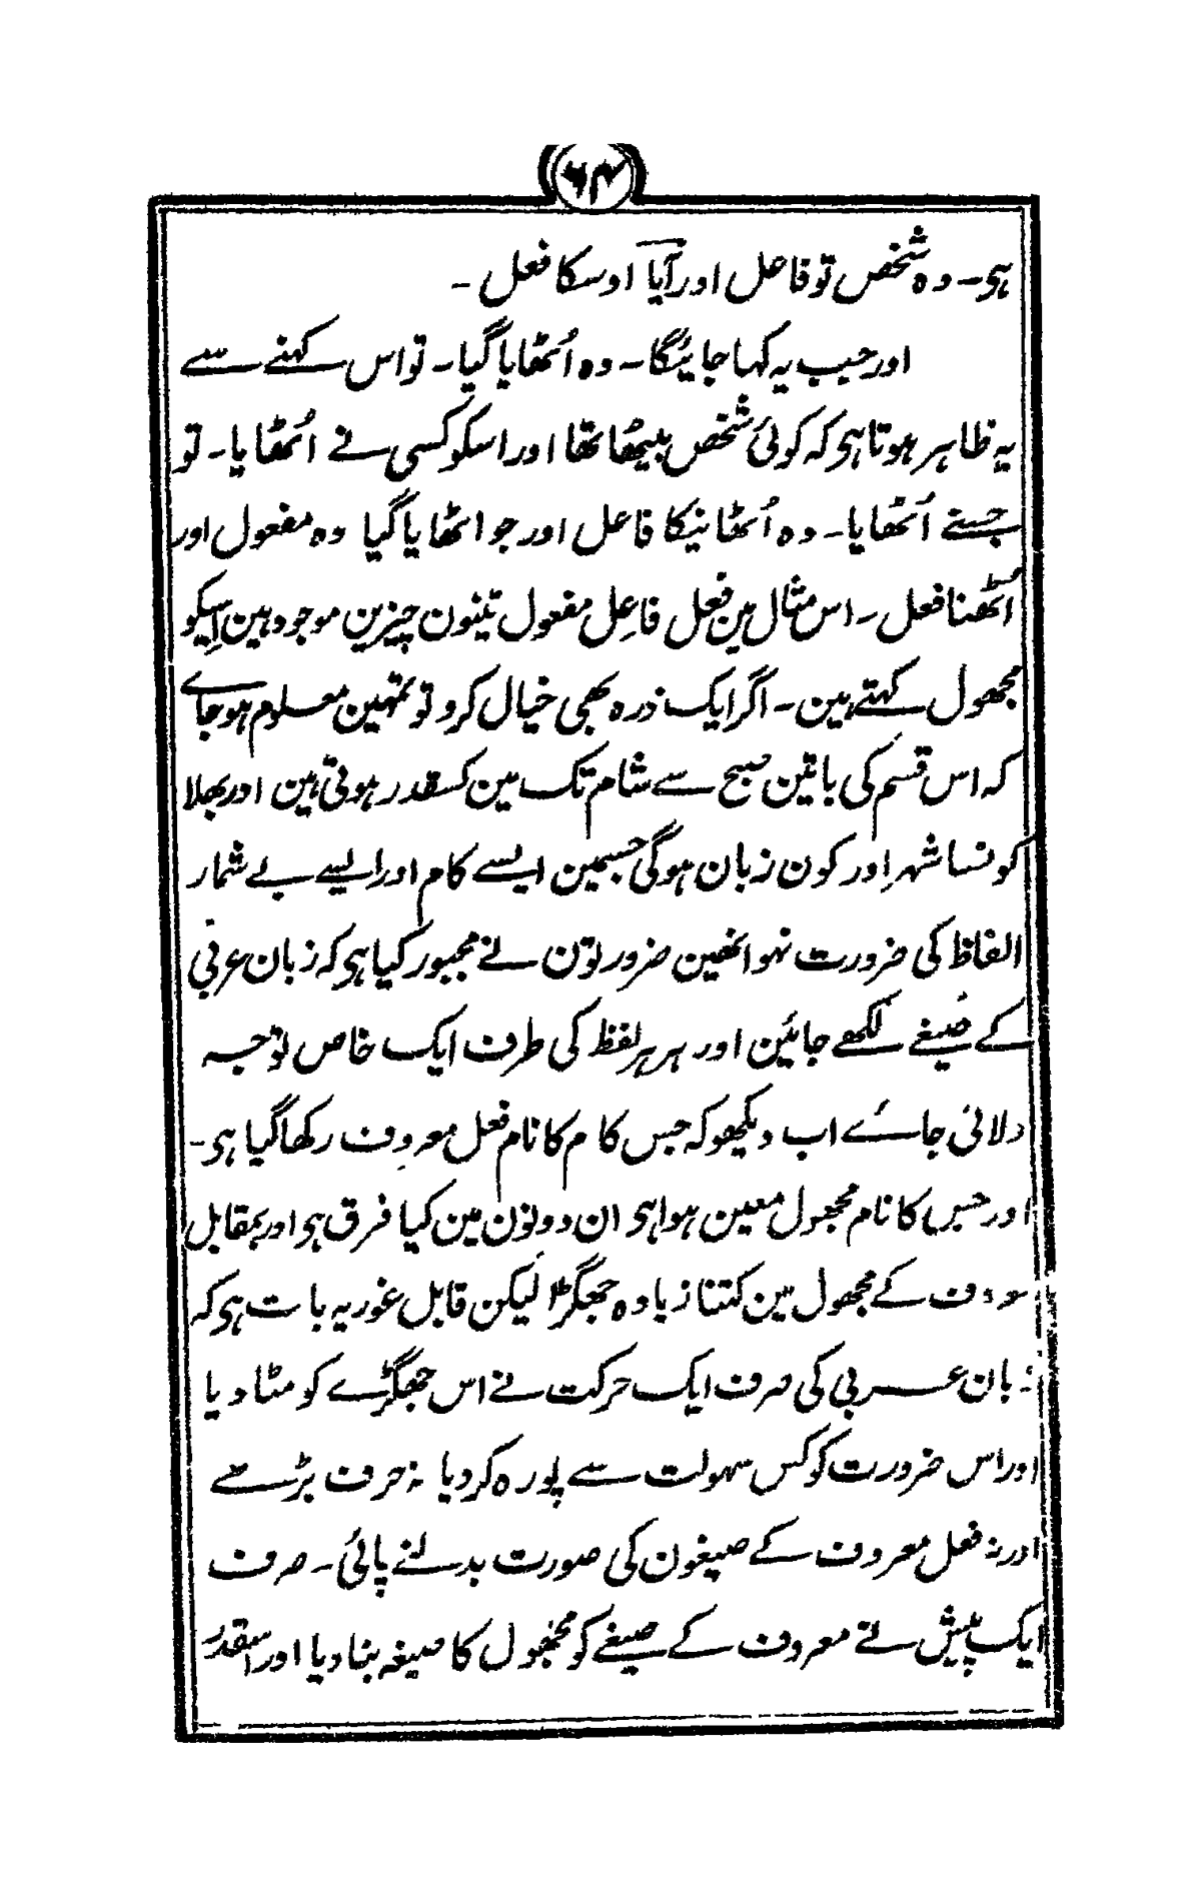 ۶۴
ہی۔ وہ شخص تو فاعل اور آیا اوسکا فعل ۔
اور جب یہ کہا جائیگا۔ وہ اُٹھایا گیا۔ تو اس کہنے سے
یہ ظاہر ہوتا ہی کہ کوئی شخص بیٹھا تھا اور اسکو کسی نے اُٹھایا۔ تو
جسنے اُٹھایا۔ وہ اُٹھانیکا فاعل اور جو اٹھایا گیا وہ مفعول اور
اُٹھنا فعل۔ اس مثال مین فعل فاعِل مفعول تینون چیزین موجود ہین اِسیکو
مجھول کہتے ہین۔ اگر ایک ذرہ بھی خیال کرو تو تمھین معلوم ہو جاے
کہ اس قسم کی باتین صبح سے شام تک مین کسقدر ہوتی ہین اور بھلا
کونسا شہر اور کون زبان ہوگی جسمین ایسے کام اور ایسے بے شمار
الفاظ کی ضرورت نہو انھین ضرورتون نے مجبور کیا ہی کہ زبان عربی
کے صیغے لکھے جائین اور ہر ہر لفظ کی طرف ایک خاص توجہ
دلائی جائے اب دیکھو کہ جس کام کا نام فعل معروف رکھا گیا ہی۔
اور جس کا نام مجھول معین ہوا ہی ان دونون مین کیا فرق ہی اور بمقابل
کے مجھول مین کتنا زیادہ جھگڑا لیکن قابل غور یہ بات ہی کہ
زبان عربی کی صرف ایک حرکت نے اس جھگڑے کو مٹا دیا
اور اس ضرورت کو کس سہولت سے پورہ کر دیا نہ حرف بڑھے
اور نہ فعل معروف کے صیغون کی صورت بدلنے پائی۔ صرف
ایک پیش نے معروف کے صیغے کو مجھول کا صیغہ بنا دیا اور اسقدر